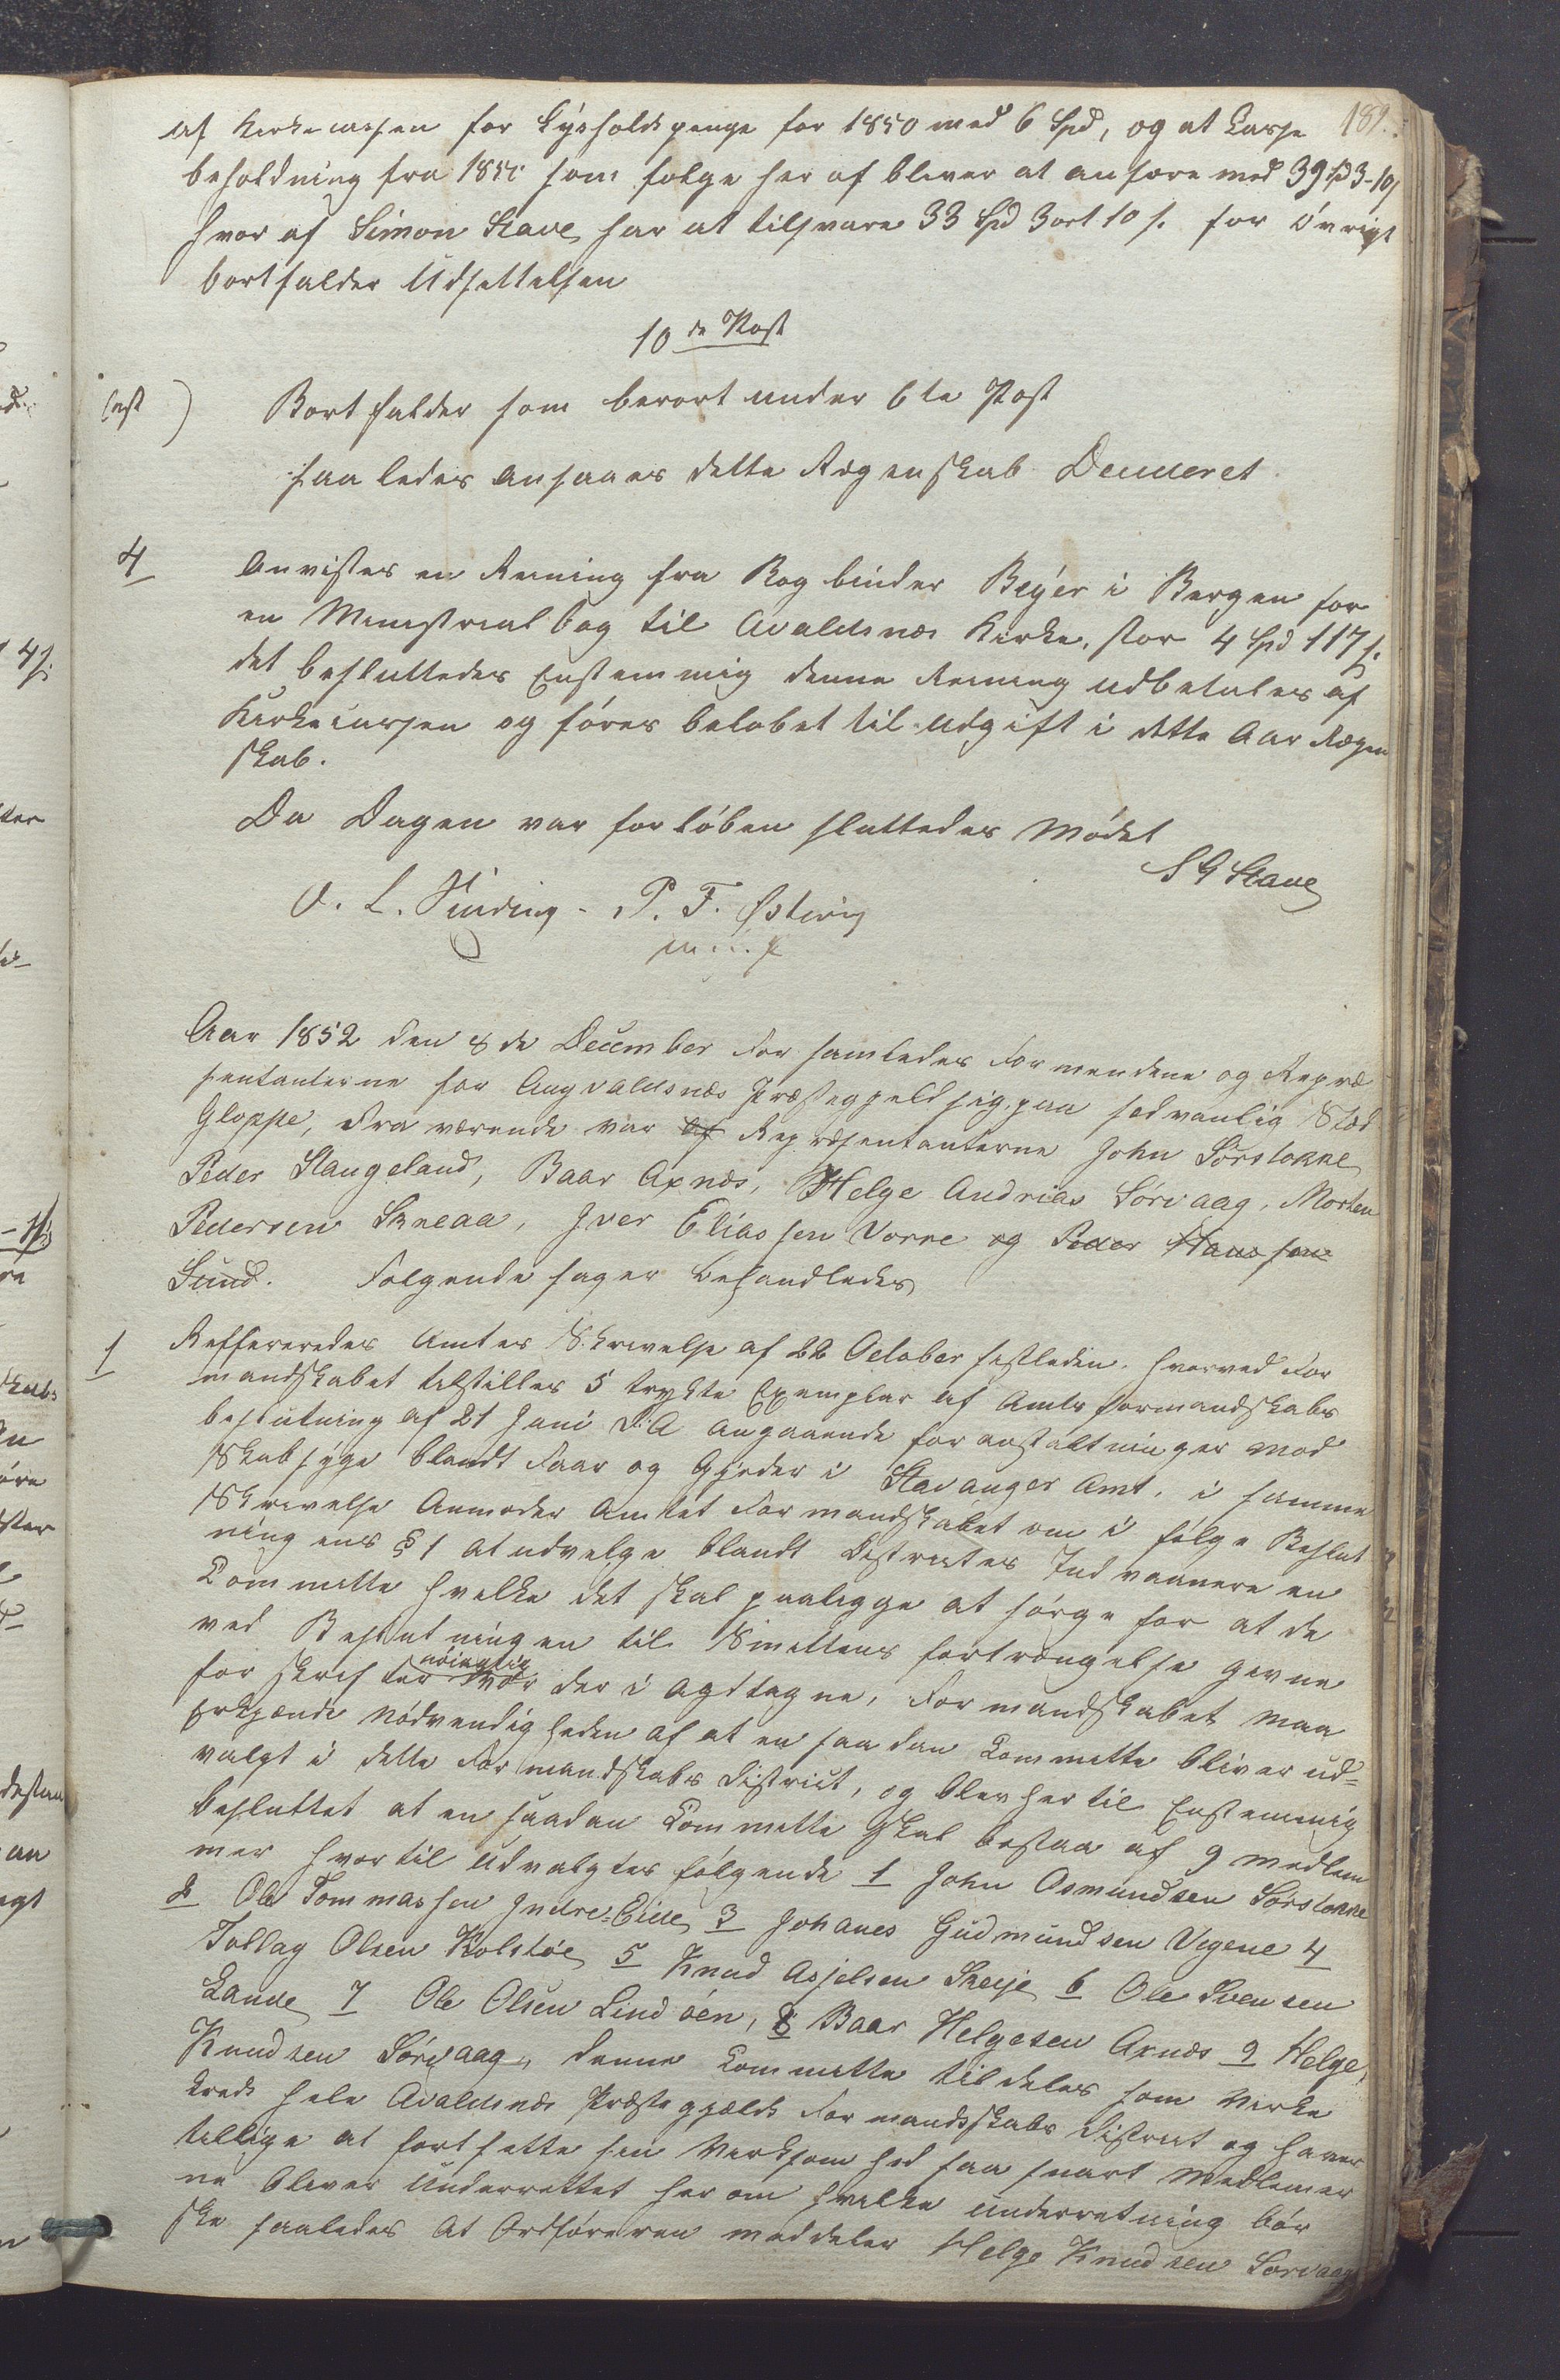 181.
af Kirkecassen for Lyshold penge for 1850 med 6 Spd, og at Casse
beholdning fra 1850 som følge her af bliver at anføre med 39 Spd 3-10/
hvor af Simon Stave har at tilsvare 33 Spd 3 ort 10 s. for øvrigt
bortfalder Udsettelsen
10de Post
Bortfalder som berørt under 6te Post
saaledes ansaaes dette Regenskab Deuderet
4 Anvistes en Reining fra Bogbinder Beyer i Bergen for
en Menistrialbog til Avaldsnæs Kirke, stor 4 Spd 117 s.
det besluttedes Enstemmig denne Reining udbetales af
Kirkecassen og føres beløbet til udgift i dette Aar Regen
skab.
Da Dagen var forløben sluttedes Mødet
S G Stave
O. L. Sinding - P. F. Østvig
Aar 1852 den 8de December forsamledes Formendene og Repræ
sentanterne for Augvaldsnæs Præstegjeld sig paa sedvanlig Sted
Gloppe, Fraværende var af Repræsentanterne John Sørstokke
Peder Stangeland, Baar Axnæs, Helge Andrias Sørvaag, Morten
Pedersen Skneaa, Iver Eliassen Vorre og Peder Hansen
Sund. Følgende sager behandledes
1 Reffereredes Amtes Skrivelse af 22 October sistleden, hvorved For
mandskabet tilstilles 5 trykte Exemplar af Amtsformandskabs
beslutning af 21 Juni d: A angaaende foranstaltninger mod
Skabsyge blandt Faar og Gjeder i Stavanger Amt, i samme
Skrivelse Anmoder Amtet Formandskabet om i følge Beslut
ningens § 1 at udvelge blandt Destrictes Indvaanere en
Committe hvelke det skal paaligge at sørge for at de
ved Beslutningen til Smittens fortrængelse gevne
forskrifter nøiagtig vor der i agttagne, Formandskabet maa
Erkjænde nødvendigheden af at en saadan Committe bliver ud=
valgt i dette Formandskabs District, og blev hertil Enstemmig
besluttet at en saadan Committe skal bestaa af 9 Medlem
mer hvortil udvalgtes følgende 1 John Osmundsen Sørstokke
2 Ole Tommassen Indre-Eide 3 Johanes Gudmundsen Vegene 4
Tollag Olsen Kolstøe 5 Knud Asjelsen Skeije 6 Ole Svensen
Lande 7 Ole Olsen Lindøen, 8 Baar Helgesen Axnæs 9 Helge
Knudsen Sørvaag, denne Committe tildeles som Verke
kreds hele Avaldsnæs Præstegjælds Formandskabs District og haver
tillige at fortsette sin Verksomhed saa snart Medlemer
ne bliver underrettet herom hvelke underretning bør
ske saaledes at Ordføreren meddeler Helge Knudsen Sørvaag